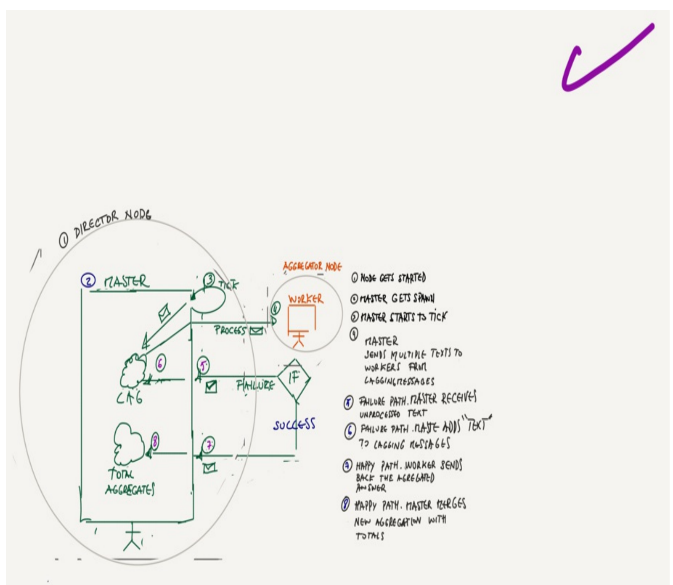 ① DIRECTOR NODE
② MASTER
③ TICK
AGGREGATOR NODE
④
WORKER
PROCESS
⑥
⑤
LAG
FAILURE
IF
SUCCESS
⑧
⑦
TOTAL
AGGREGATES
① NODE GETS STARTED
② MASTER GETS SPAWN
③ MASTER STARTS TO TICK
④
MASTER
SENDS MULTIPLE TEXTS TO
WORKERS FROM
LAGGINGMESSAGES
⑤ FAILURE PATH. MASTER RECEIVES
UNPROCESSED TEXT
⑥ FAILURE PATH. MASTE ADDS "TEXT"
TO LAGGING MESSAGES
⑦ HAPPY PATH. WORKER SENDS
BACK THE AGREGATED
ANSWER
⑧ HAPPY PATH. MASTER MERGES
NEW AGGREGATION WITH
TOTALS